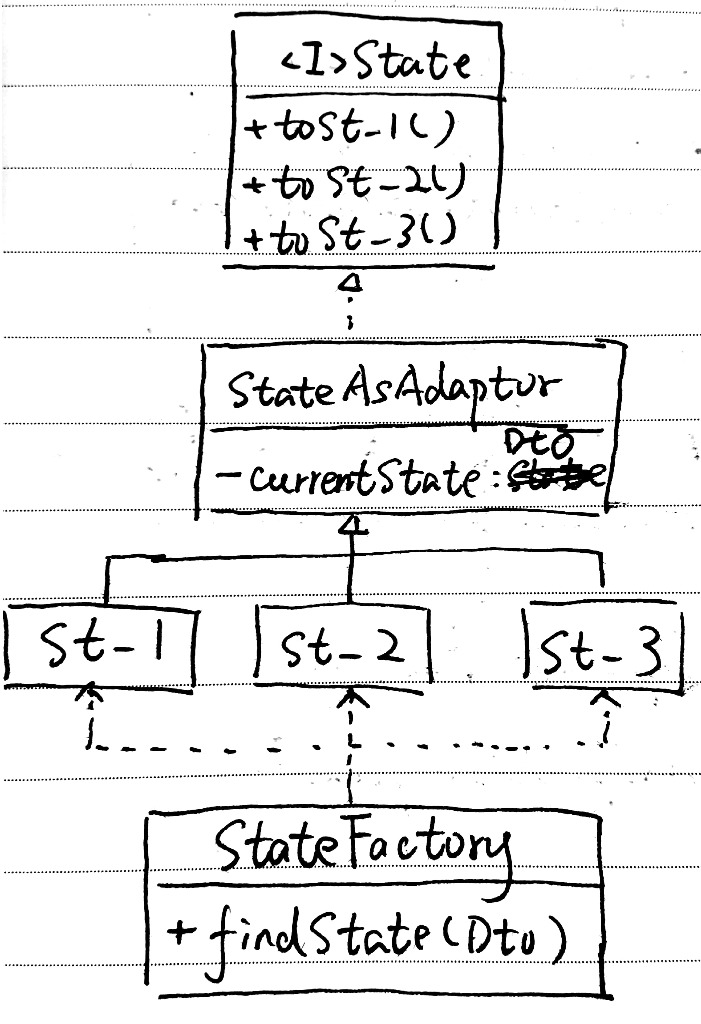 <I>State
+toSt-1()
+to St-2()
+to St-3()
StateAsAdaptor
Dto
-currentState:State
St-1
St-2
St-3
StateFactory
+findState(Dto)